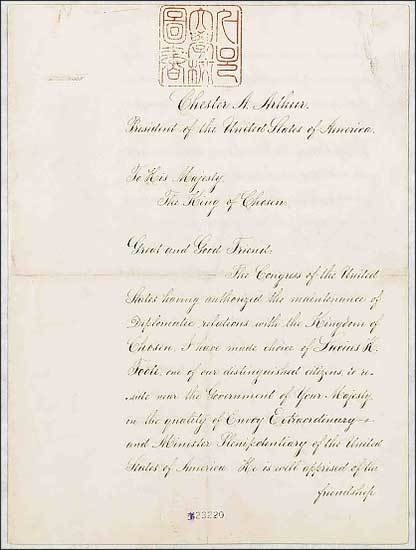 서울
大學校
圖書
Chester A. Arthur.
President of the United States of America.
To His Majesty
The King of Chosen
Great and Good Friend.
The Congress of the United
States having authorized the maintenance of
Diplomatic relations with the Kingdom of
Chosen, I have made choice of Lucius H.
Foote, one of our distinguished citizens, to re-
side near the Government of Your Majesty
in the quality of Envoy Extraordinary
and Minister Plenipotentiary of the United
States of America. He is well apprised of the
friendship